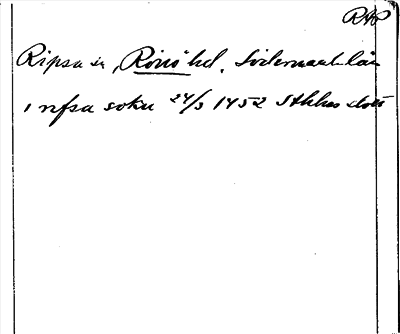 RAP
Ripsa sn, Rönö hd. Södermanl. län
i rifsa sokn 24/3 1452 Sthlms